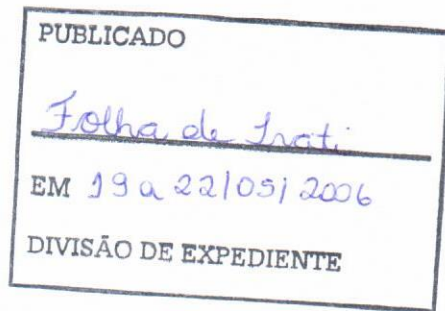 PUBLICADO
Folha de Irati
EM 19 a 22/05/2006
DIVISÃO DE EXPEDIENTE